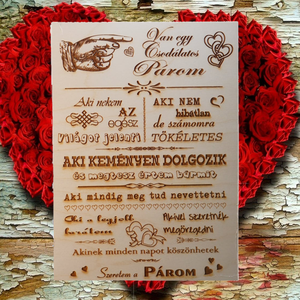 Van egy
Csodálatos
Párom
Aki nekem
AZ
egész
Világot jelenti
AKI NEM
hibátlan
de számomra
TÖKÉLETES
AKI KEMÉNYEN DOLGOZIK
és megtesz értem bármit
Aki mindig meg tud nevettetni
Aki a legjobb
barátom
Akivel szeretnék
megöregedni
Akinek minden napot köszönhetek
Szeretem a PÁROM